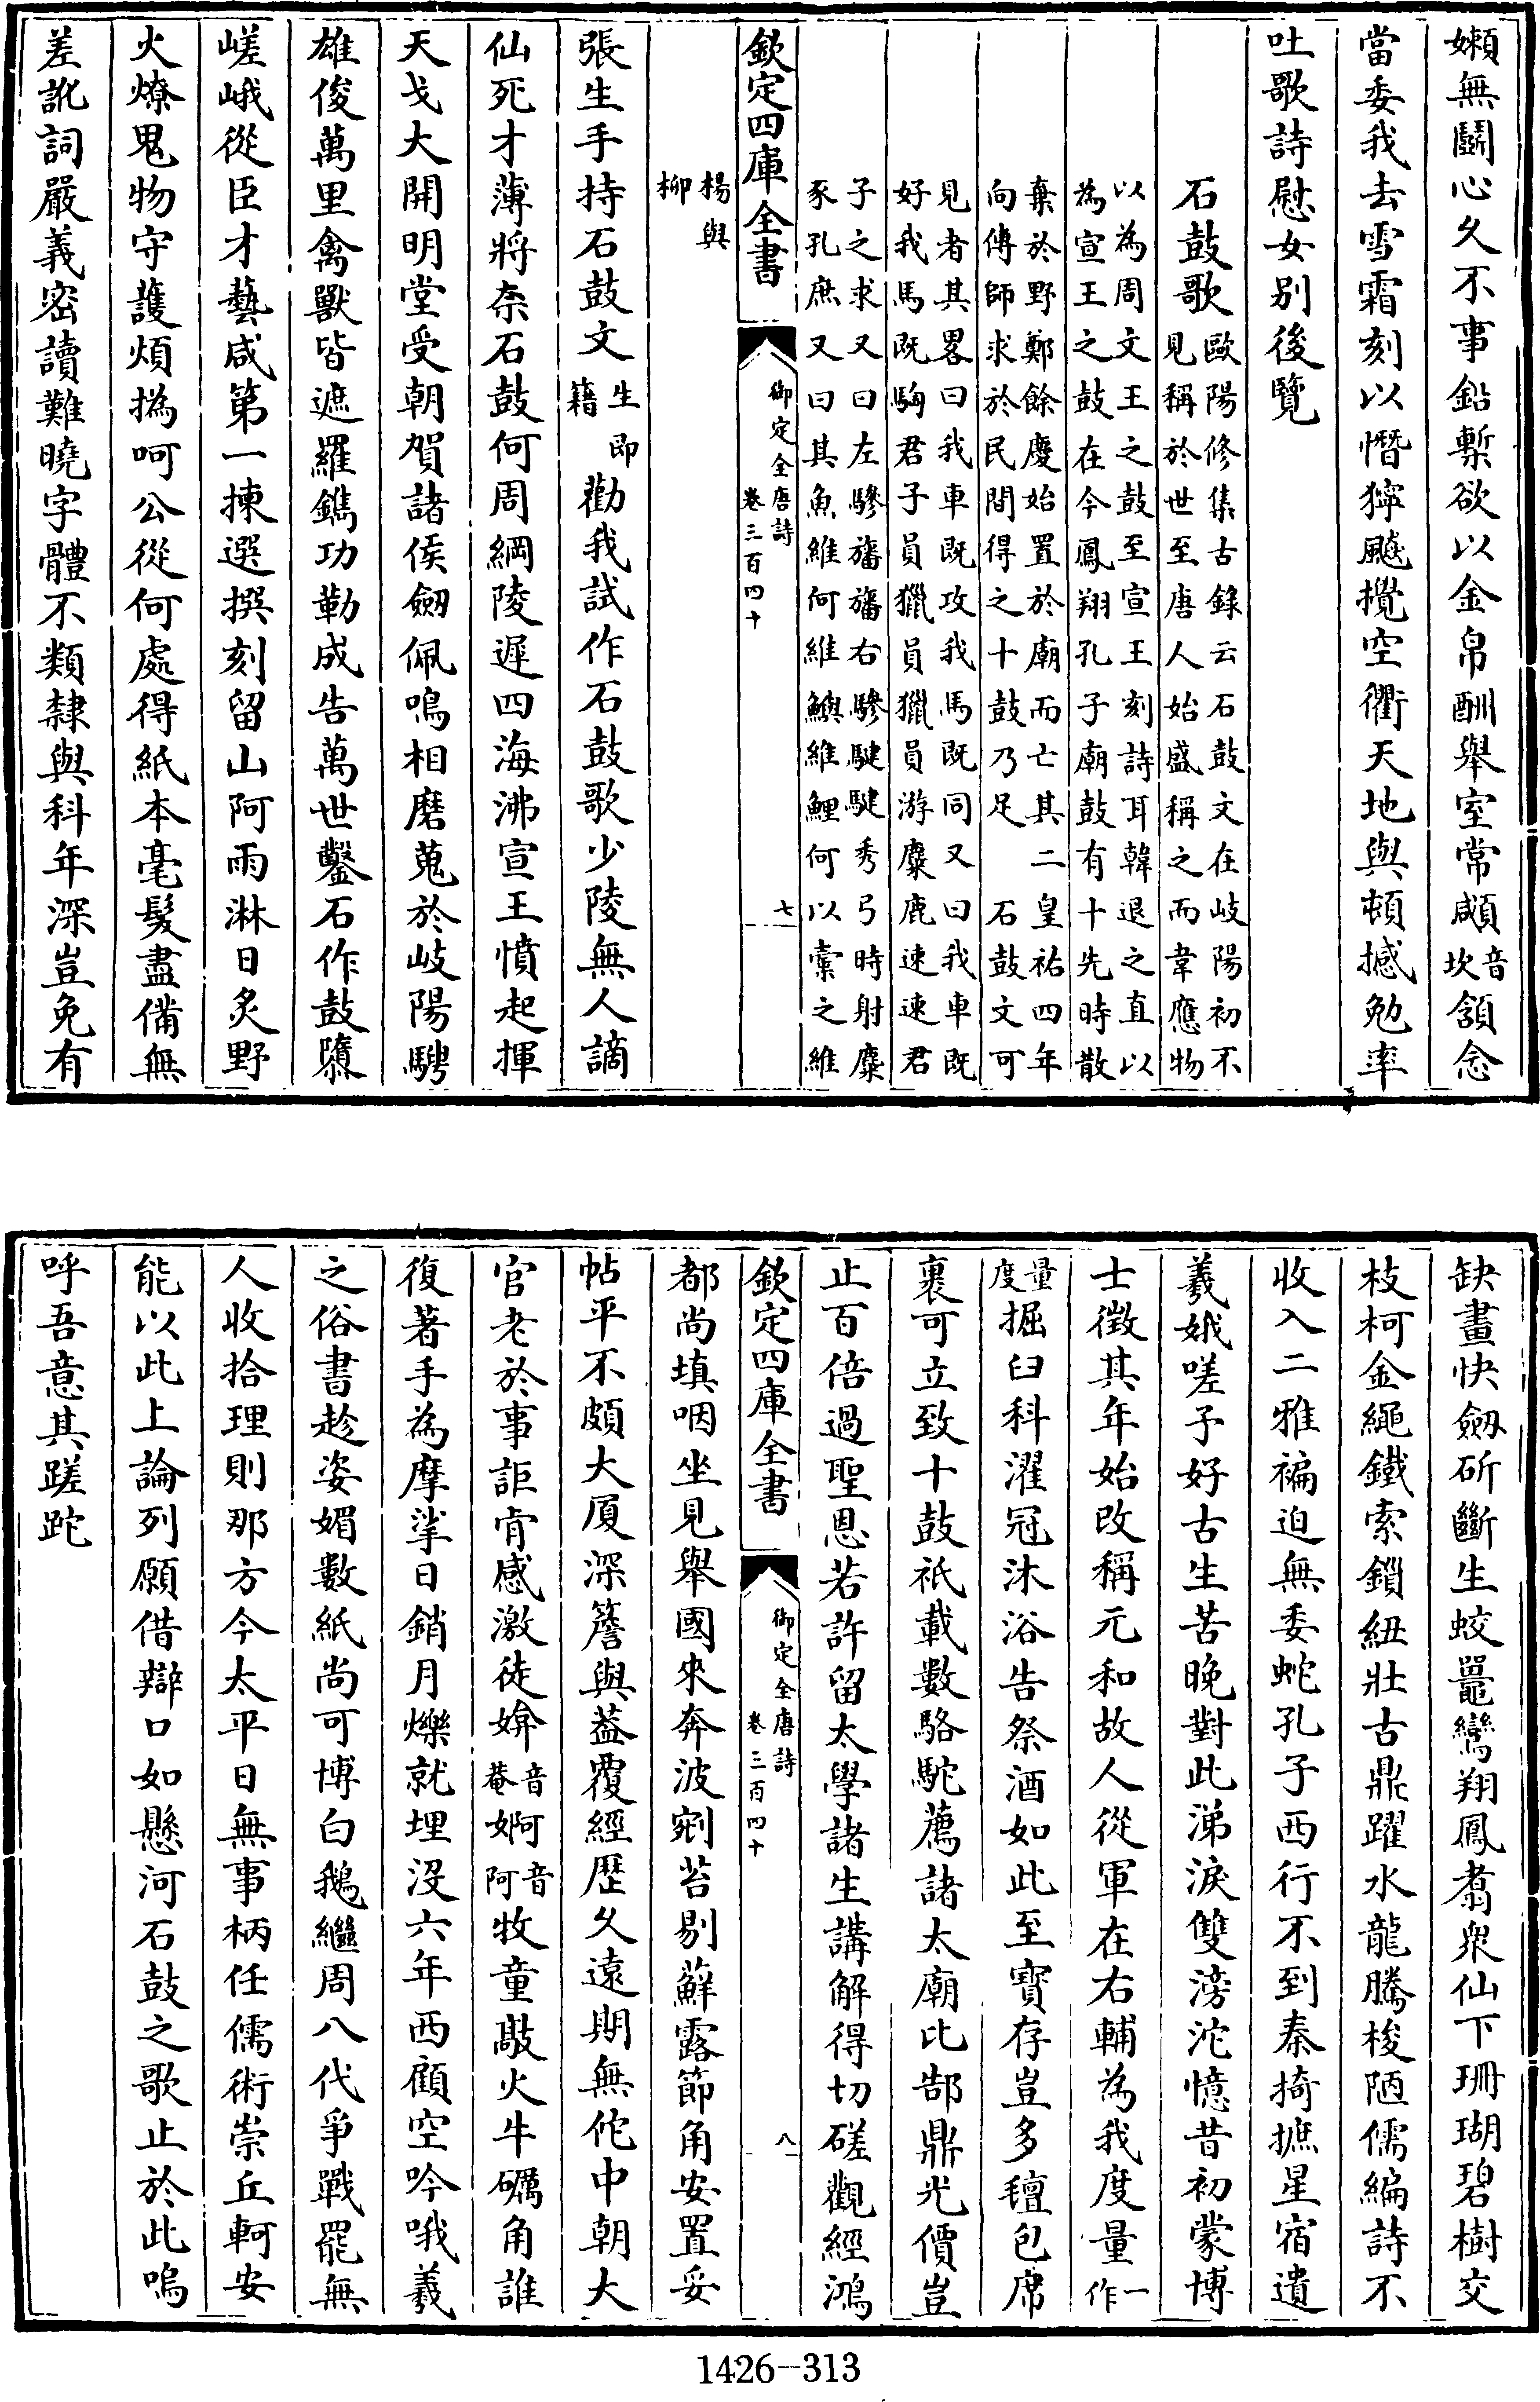 嬾無鬬心久不事鉛槧欲以金帛酬舉室常顑音坎頷念
當委我去雪霜刻以憯獰飈攪空衢天地與頓撼勉率
吐歌詩慰女別後覽
石鼓歌歐陽修集古錄云石鼓文在岐陽初不見稱於世至唐人始盛稱之而韋應物
以為周文王之鼓至宣王刻詩耳韓退之直以為宣王之鼓在今鳳翔孔子廟鼓有十先時散
棄於野鄭餘慶始置於廟而亡其二皇祐四年向傳師求於民間得之十鼓乃足　石鼓文可
見者其畧曰我車既攻我馬既同又曰我車既好我馬既駒君子員獵員獵員游麋鹿速速君
子之求又曰左驂旛旛右驂騝騝秀弓時射麋豕孔庶又曰其魚維何維鱮維鯉何以橐之維
欽定四庫全書
御定全唐詩
卷三百四十
七
楊與柳
張生手持石鼓文生即籍勸我試作石鼓歌少陵無人謫
仙死才薄將奈石鼓何周綱陵遲四海沸宣王憤起揮
天戈大開明堂受朝賀諸侯劒佩鳴相磨蒐於岐陽騁
雄俊萬里禽獸皆遮羅鐫功勒成告萬世鑿石作鼓隳
嵯峨從臣才藝咸第一揀選撰刻留山阿雨淋日炙野
火燎鬼物守護煩撝呵公從何處得紙本毫髮盡備無
差訛詞嚴義密讀難曉字體不類隸與科年深豈免有
缺畫快劒斫斷生蛟鼉鸞翔鳳翥衆仙下珊瑚碧樹交
枝柯金繩鐵索鎖紐壯古鼎躍水龍騰梭陋儒編詩不
收入二雅褊迫無委蛇孔子西行不到秦掎摭星宿遺
羲娥嗟予好古生苦晚對此涕淚雙滂沱憶昔初蒙博
士徵其年始改稱元和故人從軍在右輔為我度量一作
量度掘臼科濯冠沐浴告祭酒如此至寶存豈多氊包席
裹可立致十鼓祇載數駱駝薦諸太廟比郜鼎光價豈
止百倍過聖恩若許留太學諸生講解得切磋觀經鴻
欽定四庫全書
御定全唐詩
卷三百四十
八
都尚填咽坐見舉國來奔波剜苔剔蘚露節角安置妥
帖平不頗大厦深簷與葢覆經歷久遠期無佗中朝大
官老於事詎肯感激徒媕音菴婀音阿牧童敲火牛礪角誰
復著手為摩挲日銷月爍就埋沒六年西顧空吟哦羲
之俗書趁姿媚數紙尚可博白鵝繼周八代爭戰罷無
人收拾理則那方今太平日無事柄任儒術崇丘軻安
能以此上論列願借辯口如懸河石鼓之歌止於此嗚
呼吾意其蹉跎
1426-313